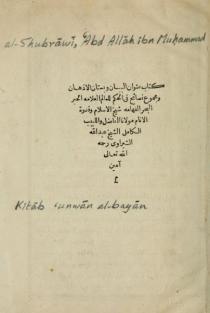 al-Shubrāwī, ʻAbd Allāh ibn Muḥammad
كتاب عنوان البيان وبستان الاذهان
ومجموع نصائح فى الحكم للعالم العلامة الحبر
البحر الفهامه شيخ الاسلام وقدوة
الانام مولانا الفاضل والاديب
الكامل الشيخ عبدالله
الشبراوى رحمه
الله تعالى
آمين
Kitāb ʻunwān al-bayān